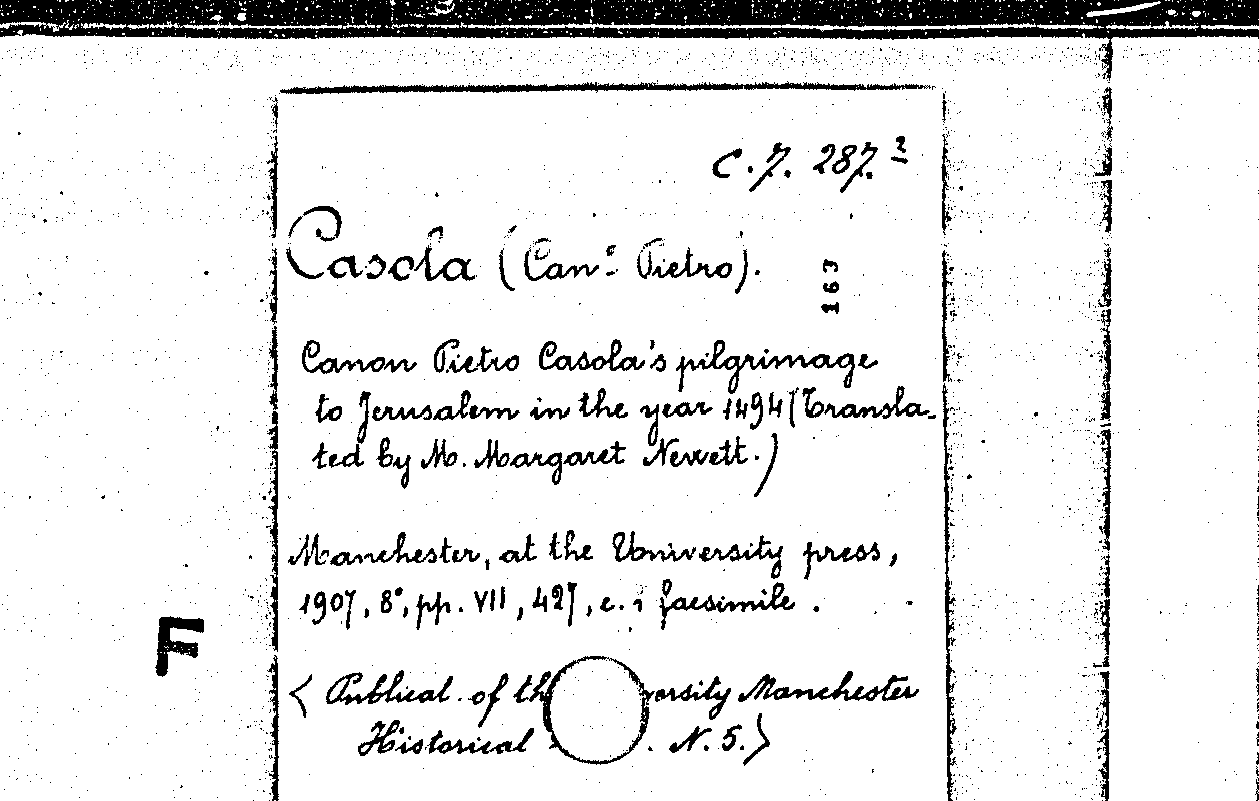 C.7. 287.²
Casola (Can.º Pietro).
163
Canon Pietro Casola's pilgrimage
to Jerusalem in the year 1494 (Transla-
ted by M. Margaret Newett.)
Manchester, at the University press,
1907, 8°, pp. VII, 427, c. 1 facsimile.
F
< Publical. of th versity Manchester
Historical . N. 5. >